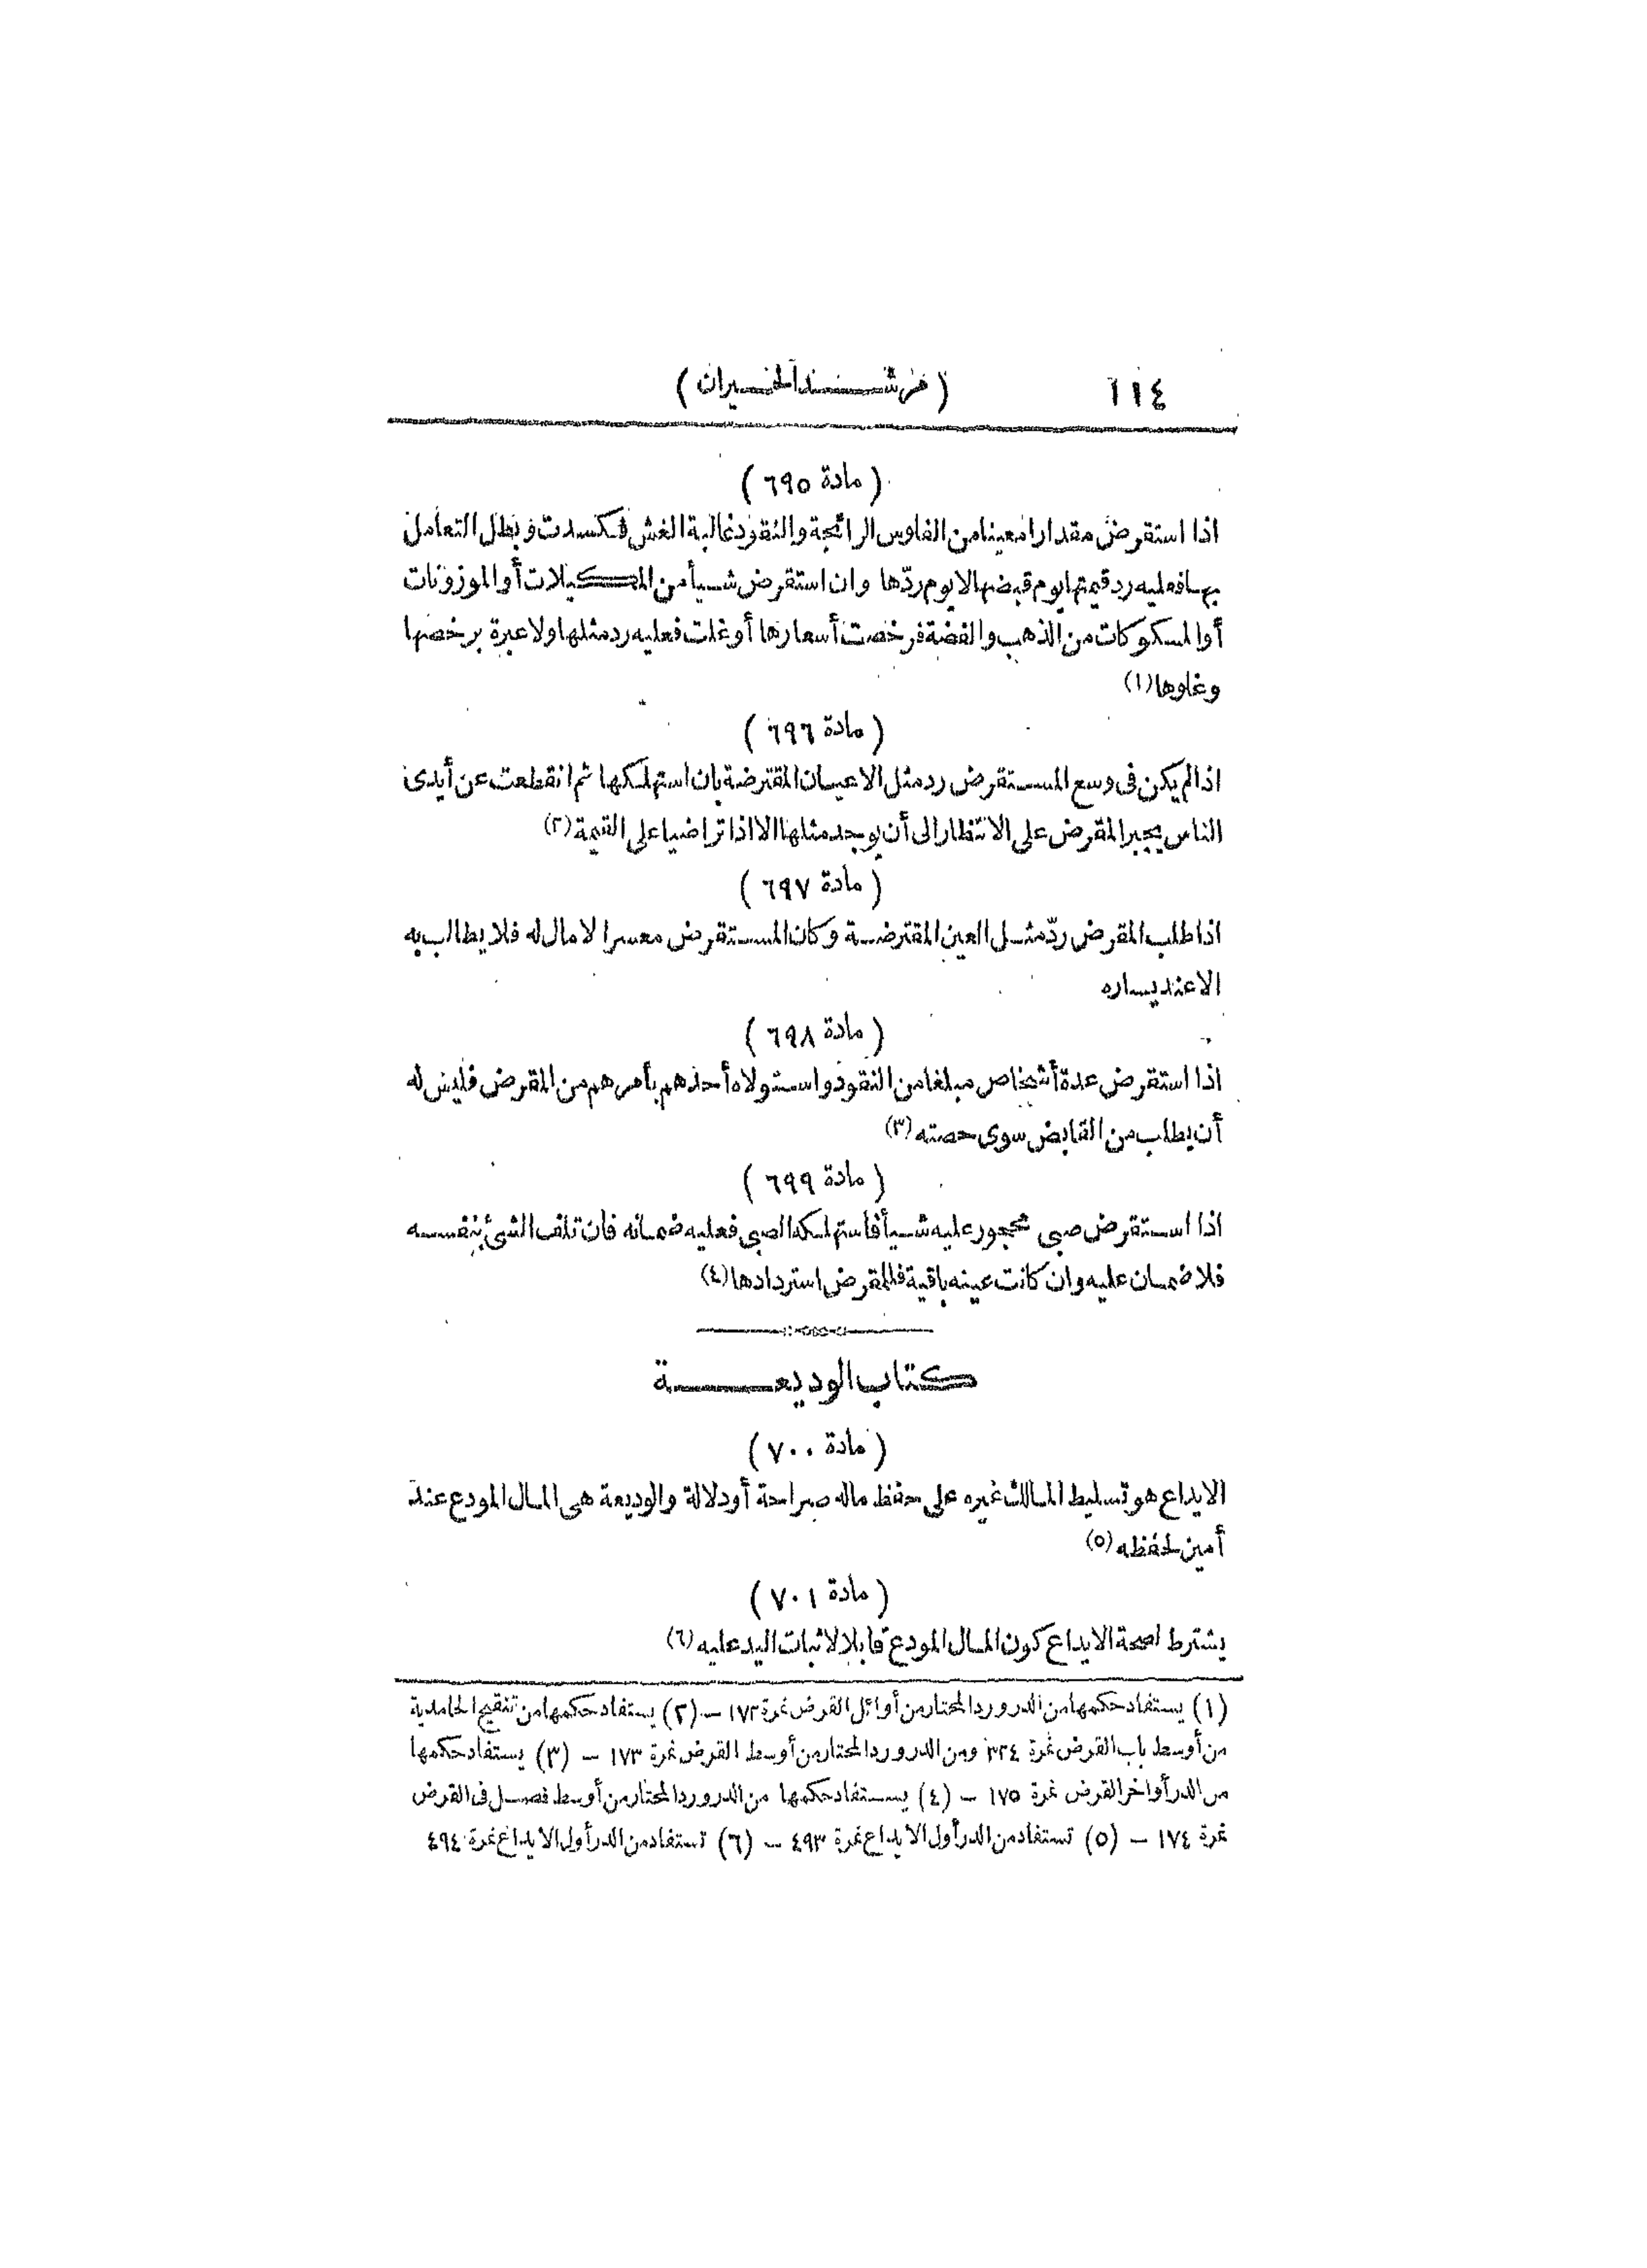 ١١٤ ( مرشد الحيران )
( مادة ٦٩٥ )
اذا استقرض مقدارا معينا من الفلوس الرائجة والنقود غالبة الغش فكسدت وبطل التعامل
بها فعليه رد قيمتها يوم قبضها لا يوم ردّها وان استقرض شيأ من المكيلات أو الموزونات
أو المسكوكات من الذهب والفضة فرخصت أسعارها أو غلت فعليه رد مثلها ولا عبرة برخصها
وغلوها (١)
( مادة ٦٩٦ )
اذا لم يكن فى وسع المستقرض رد مثل الاعيان المقترضة بان استهلكها ثم انقطعت عن أيدى
الناس يجبر المقرض على الانتظار الى أن يوجد مثلها الا اذا تراضيا على القيمة (٢)
( مادة ٦٩٧ )
اذا طلب المقرض ردّ مثل العين المقترضة وكان المستقرض معسرا لا مال له فلا يطالب به
الا عند يساره
( مادة ٦٩٨ )
اذا استقرض عدة أشخاص مبلغا من النقود واستولاه أحدهم بأمرهم من المقرض فليس له
أن يطلب من القابض سوى حصته (٣)
( مادة ٦٩٩ )
اذا استقرض صبى محجور عليه شيأ فاستهلكه الصبى فعليه ضمانه فان تلف الشئ بنفسه
فلا ضمان عليه وان كانت عينه باقية فللمقرض استردادها (٤)
كتاب الوديعة
( مادة ٧٠٠ )
الايداع هو تسليط المالك غيره على حفظ ماله صراحة أو دلالة والوديعة هى المال المودع عند
أمين لحفظه (٥)
( مادة ٧٠١ )
يشترط لصحة الايداع كون المال المودع قابلا لاثبات اليد عليه (٦)
(١) يستفاد حكمها من الدر ورد المحتار من أوائل القرض نمرة ١٧٢ — (٢) يستفاد حكمها من تنقيح الحامدية
من أوسط باب القرض نمرة ٣٢٤ ومن الدر ورد المحتار من أوسط القرض نمرة ١٧٣ — (٣) يستفاد حكمها
من الدر أواخر القرض نمرة ١٧٥ — (٤) يستفاد حكمها من الدر ورد المحتار من أوسط فصل فى القرض
نمرة ١٧٤ — (٥) تستفاد من الدر أول الايداع نمرة ٤٩٣ — (٦) تستفاد من الدر أول الايداع نمرة ٤٩٤